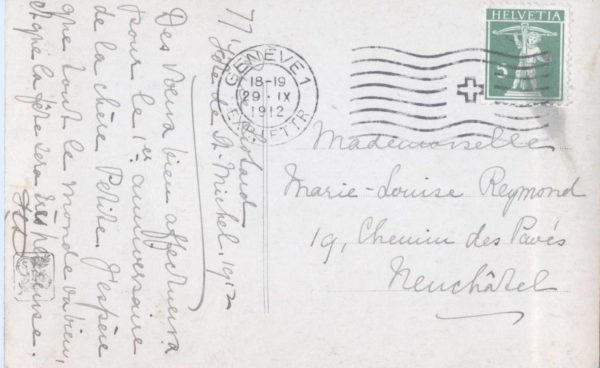 HELVETIA
5
GENÈVE 1
18-19
29. IX
1912
EXP. LETTR.
77,
Fête de St-Michel, 1912
Des vœux bien affectueux
pour le 1er anniversaire
de la chère Petite. J'espère
que tout le monde va bien,
et que la fête sera très heureuse.
Mademoiselle
Marie-Louise Reymond
19, Chemin des Pavés
Neuchâtel